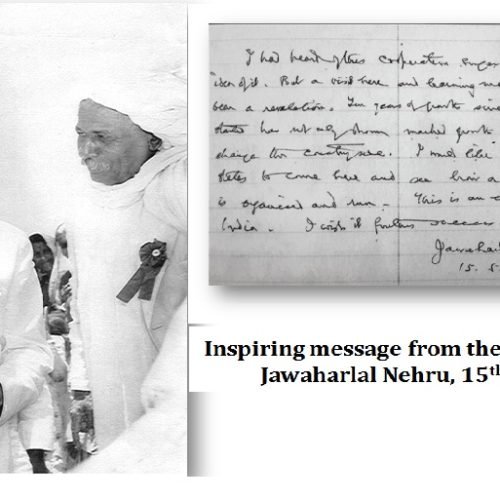 I had heard of this cooperative sugar
idea of it. But a visit here and learning
been a revelation. Ten years of growth
has not only shown marked growth
change the countryside. I would like
states to come here and see how a
is organised and run. This is an
India. I wish it further success
Jawaha
15. 5
Inspiring message from the
Jawaharlal Nehru, 15th